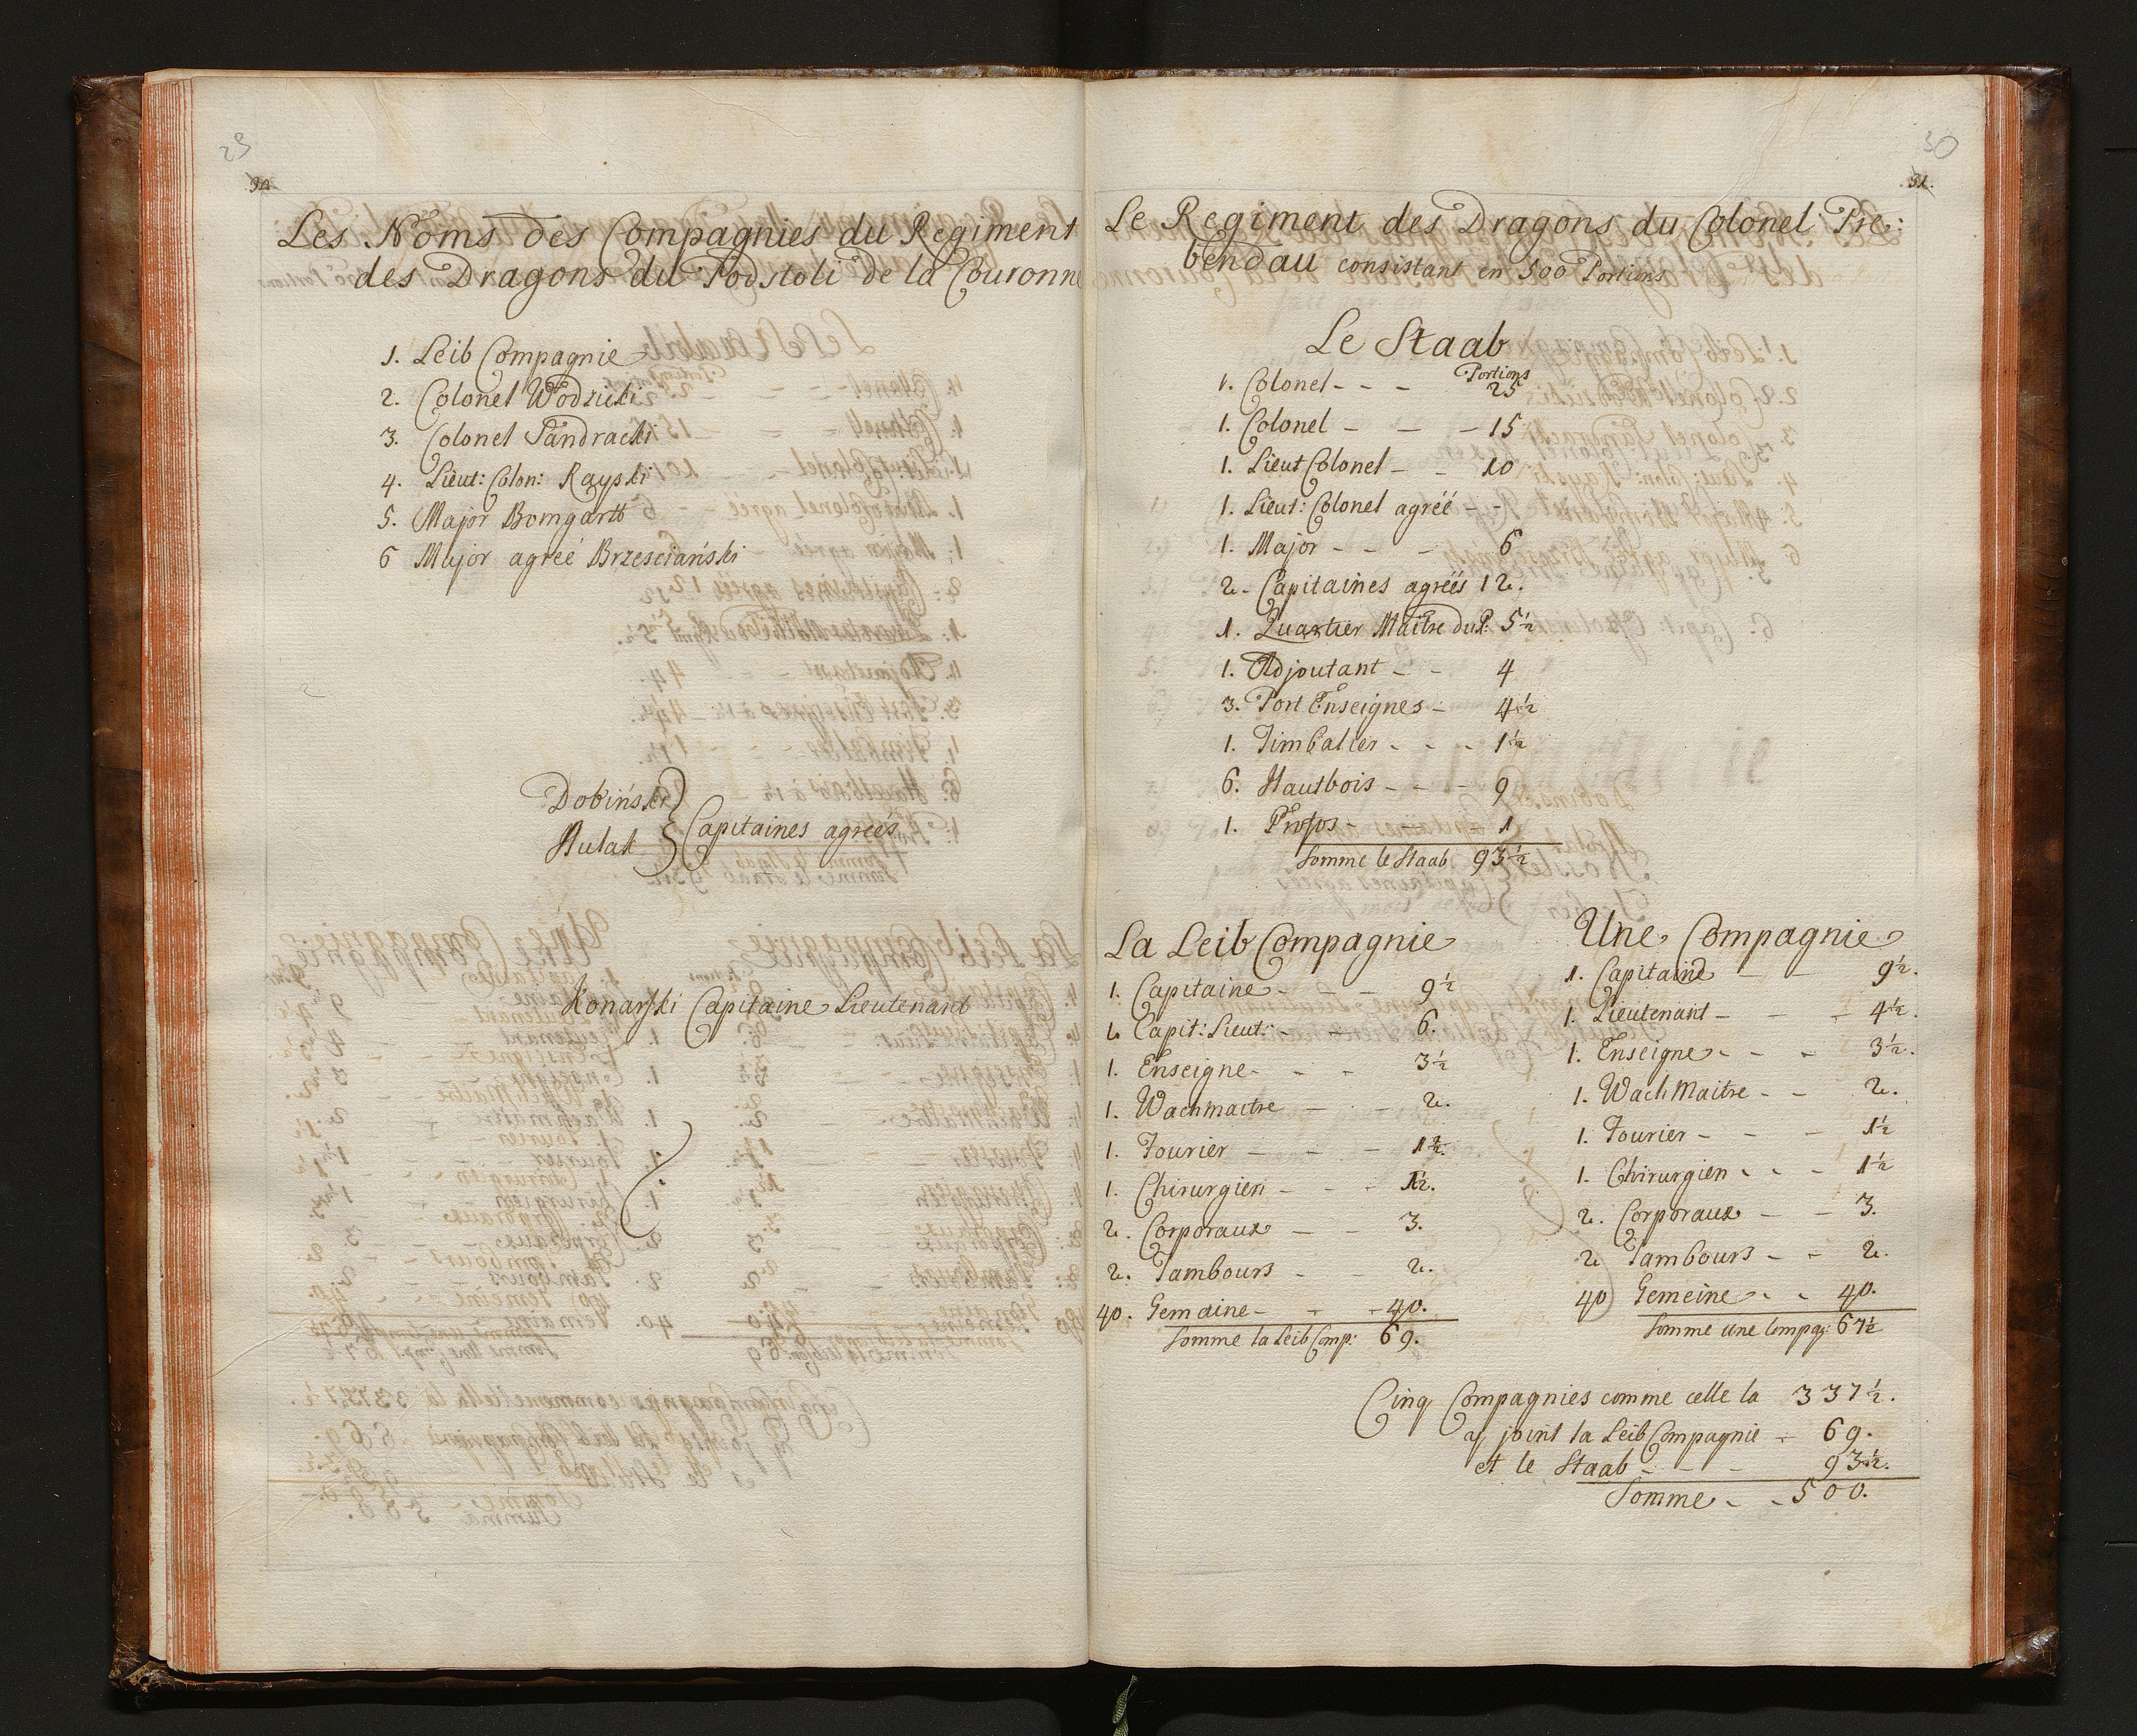 23
30.
Les Noms des Compagnies du Regiment
des Dragons du Podstoli de la Couronne
1. Leib Compagnie
2. Colonel Wodzicki
3. Colonel Sandracki
4. Lieut: Colon: Rayski
5. Major Bomgartt
6 Major agreé Brzesciański
Dobiński
Rulak
Capitaines agreés
Konarski Capitaine Lieutenant
30
31.
Le Regiment des Dragons du Colonel Pre:
bendau consistant en 500 Portions
Le Staab
Portions
1. Colonel - - - 25
1. Colonel - - - 15
1. Lieut Colonel - - 10
1. Lieut: Colonel agréé - -
1. Major - - - 6
2. Capitaines agréés 12.
1. Quartier Maitre du R: 5½
1. Adjoutant - - 4
3. Port Enseignes - 4½
1. Timbalier - - - 1½
6. Hautbois - - - 9
1. Profos - - - 1
Somme le Staab 93½
La Leib Compagnie
1. Capitaine - - - 9½
1. Capit: Lieut: - - 6.
1. Enseigne - - - 3½
1. Wachmaitre - - 2.
1. Fourier - - - 1½.
1. Chirurgien - - - 1½.
2. Corporaux - - 3.
2. Tambours - - 2.
40. Gemaine - - - 40.
Somme la Leib Comp: 69.
Une Compagnie
1. Capitaine - - 9½.
1. Lieutenant - - - 4½.
1. Enseigne - - - 3½.
1. WachMaitre - - 2.
1. Fourier - - - 1½
1. Chirurgien - - - 1½
2. Corporaux - - 3.
2 Tambours - - 2.
40 Gemeine - - 40.
Somme une Compag: 67½
Cinq Compagnies comme celle la 337½.
aj joint la Leib Compagnie - 69.
et le Staab - - - 93½.
Somme - - 500.